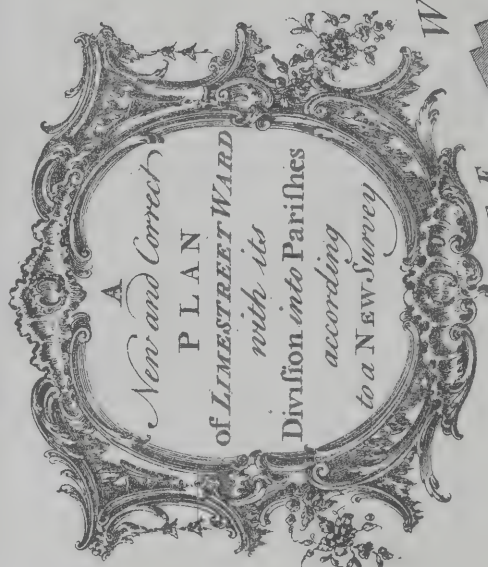 A
New and Correct
PLAN
of LIMESTREET WARD
with its
Diviſion into Pariſhes
according
to a NEW Survey
W
E